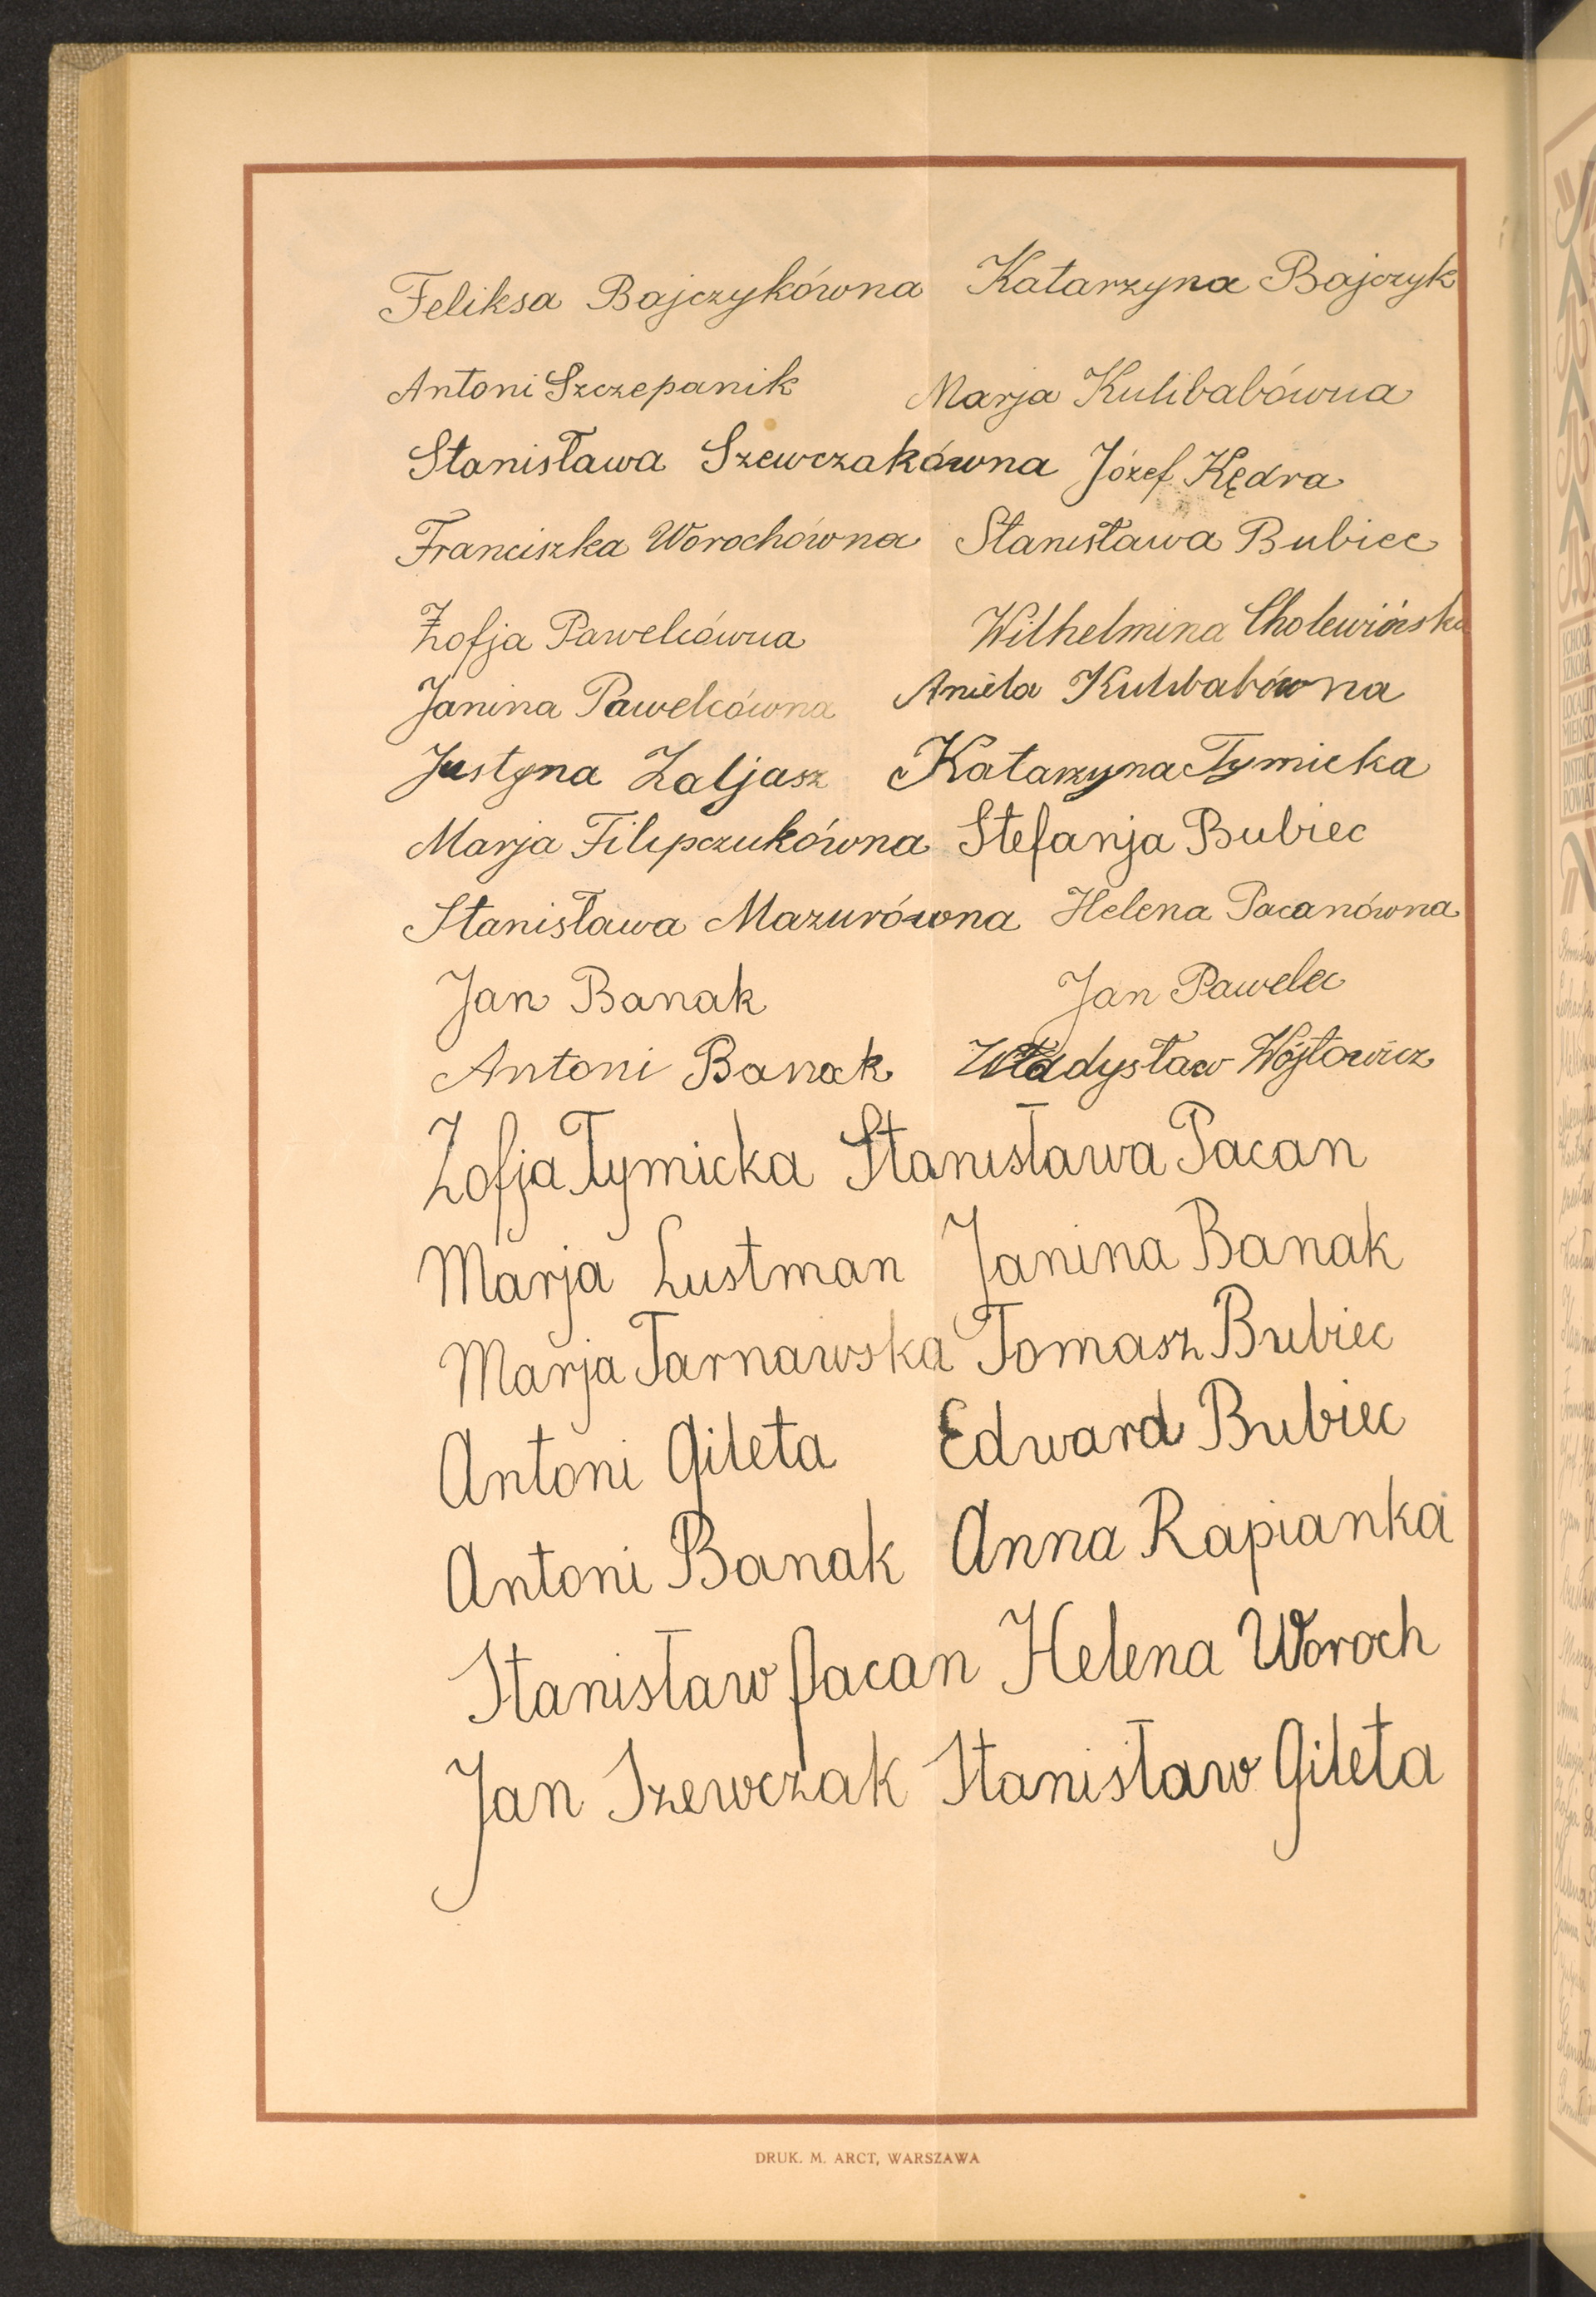 Feliksa Bajczykówna Katarzyna Bajczyk
Antoni Szczepanik Marja Kulibabówna
Stanisława Szewczakówna Józef Kędra
Franciszka Worochówna Stanisława Bubiec
Zofja Pawelcówna Wilhelmina Cholewińska
Janina Pawelcówna Aniela Kulibabówna
Justyna Zaljasz Katarzyna Tymicka
Marja Filipczukówna Stefanja Bubiec
Stanisława Mazurówna Helena Pacanówna
Jan Banak Jan Pawelec
Antoni Banak Władysław Wójtowicz
Zofja Tymicka Stanisława Pacan
Marja Lustman Janina Banak
Marja Tarnawska Tomasz Bubiec
Antoni Gileta Edward Bubiec
Antoni Banak Anna Rapianka
Stanisław Pacan Helena Woroch
Jan Szewczak Stanisław Gileta
DRUK. M. ARCT, WARSZAWA